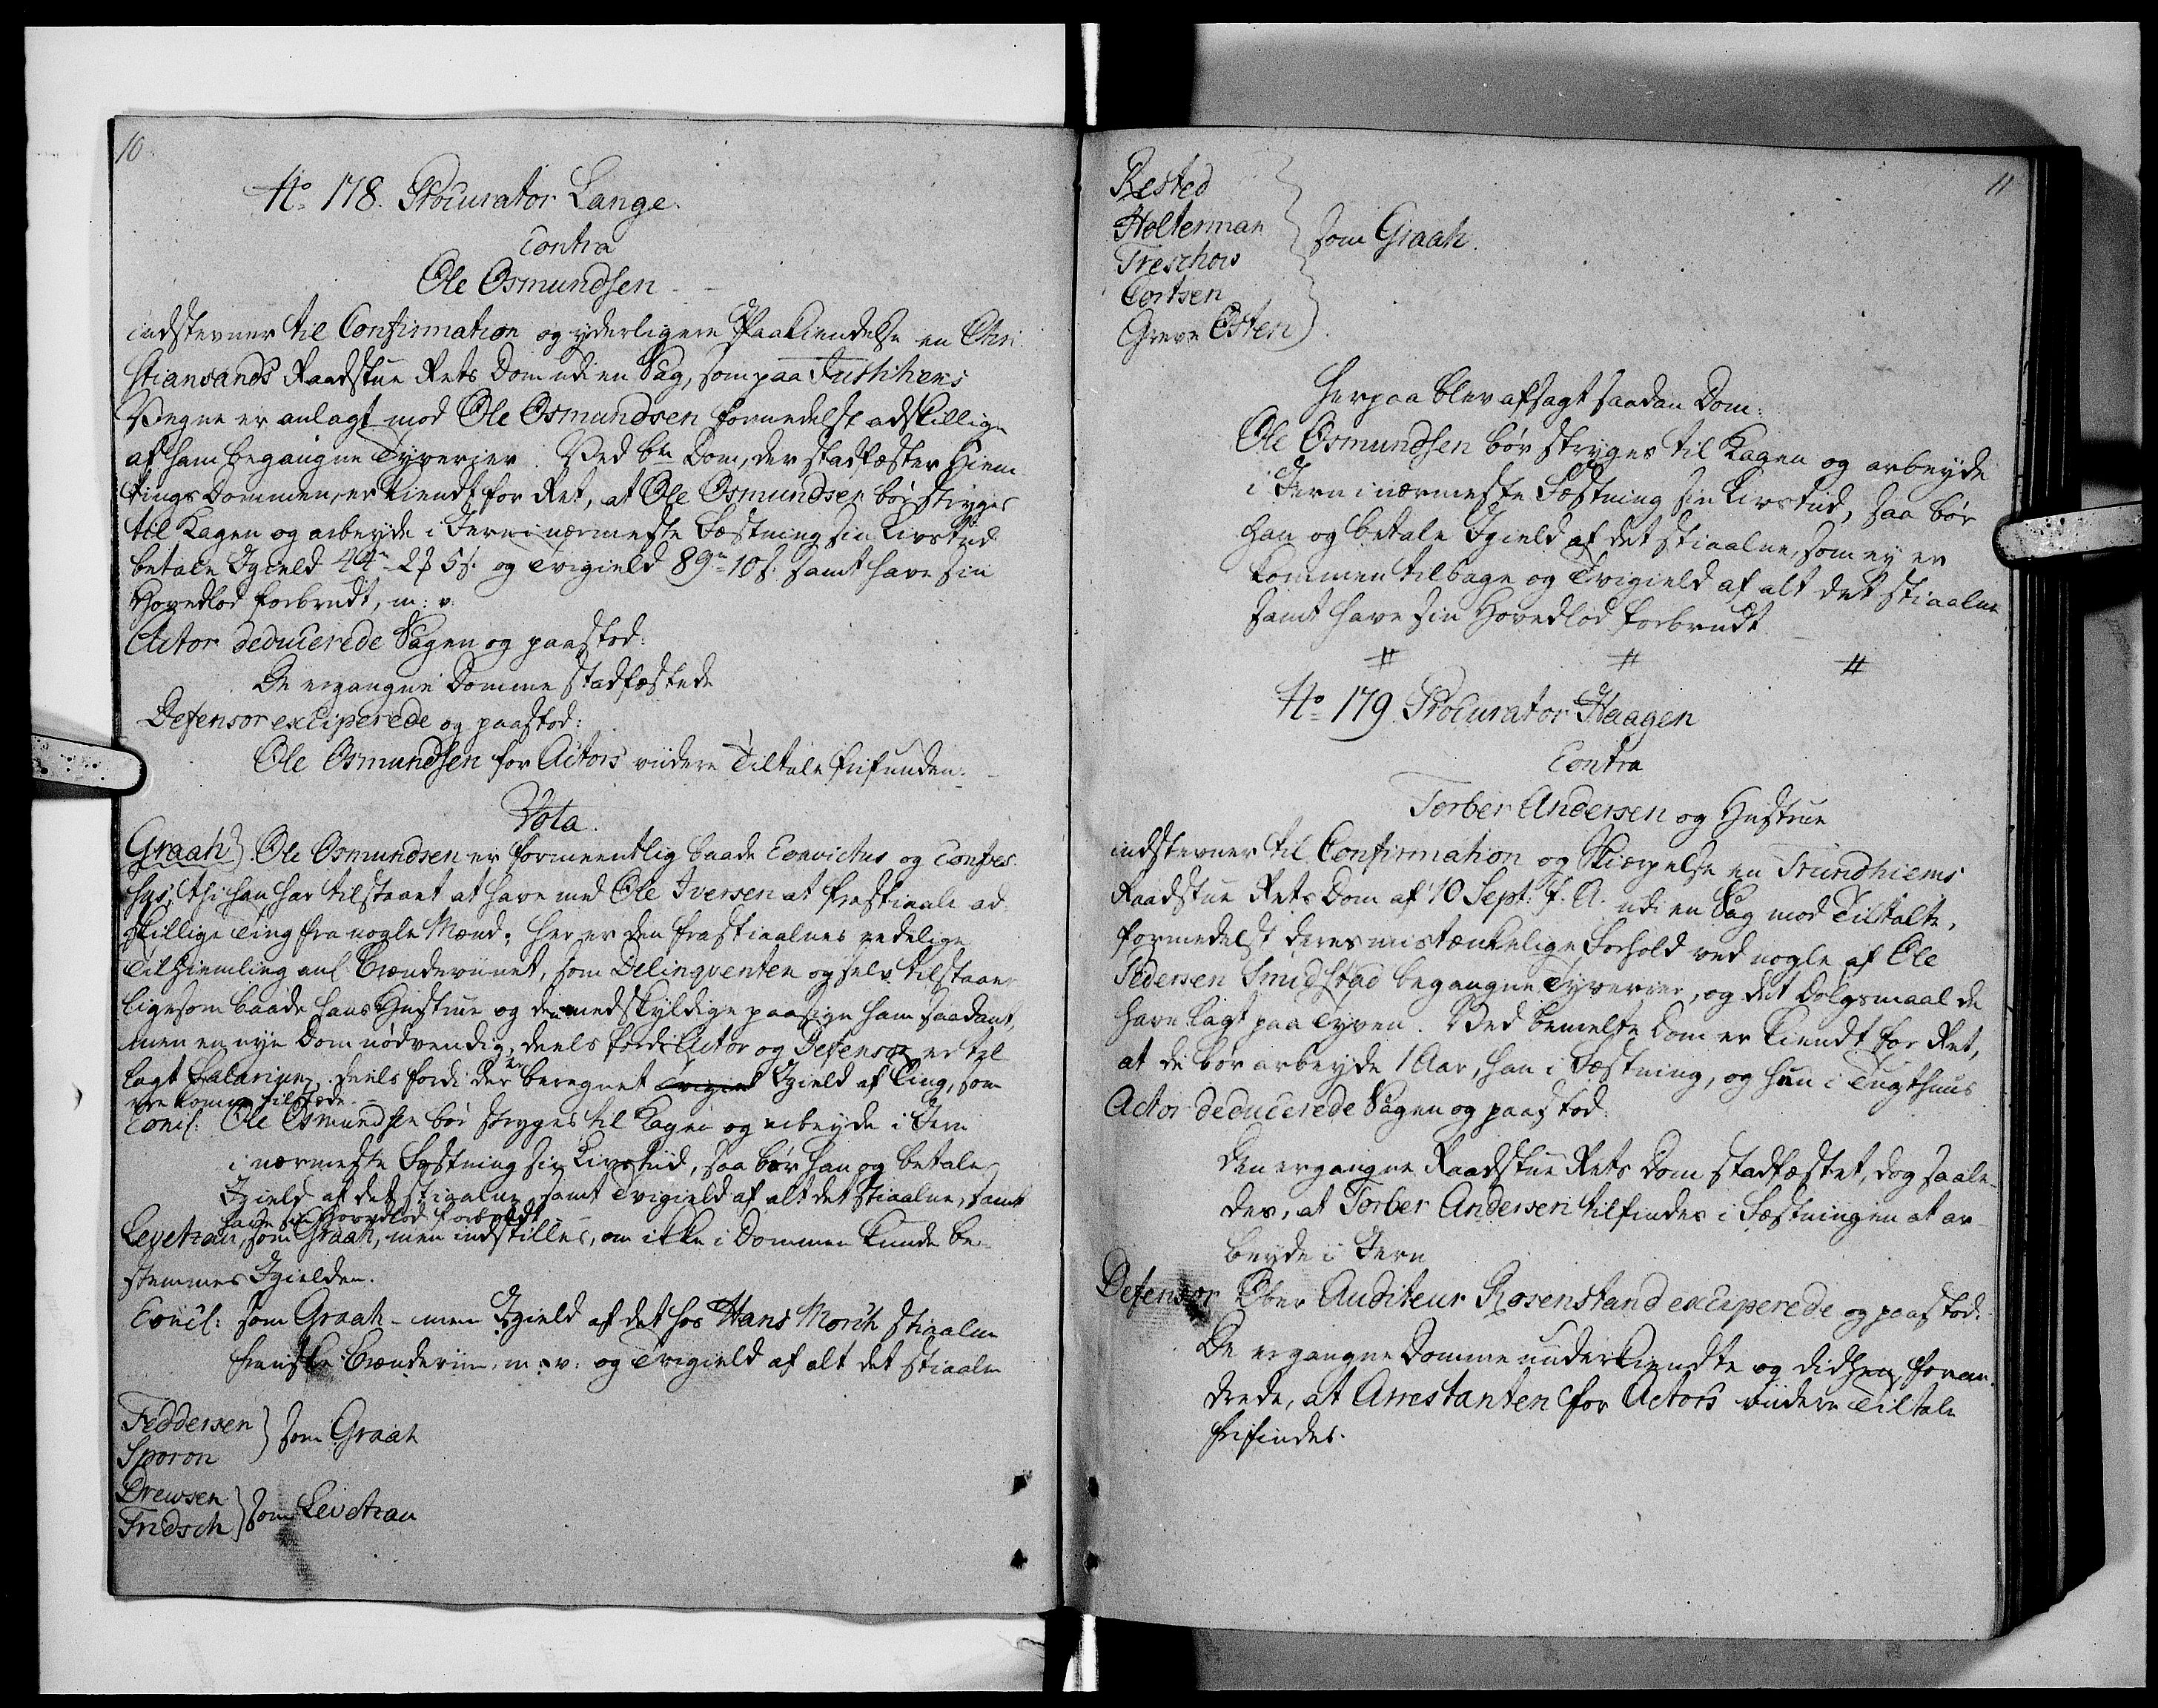 10
No. 178. Procurator Lange.
Contra
Ole Osmundsen
indstevner til Confirmation og yderligere Paakiendelse en Chri-
stiansands Raadstue Rets Dom udi en Sag, som paa Justitiens
Vegne er anlagt mod Ole Osmundsen formedelst adskillige
af ham begangne Tyverier. Ved bte Dom, der stadfæster Hiem-
tings Dommen, er kiendt for Ret, at Ole Osmundsen bør stryges
til Kagen og arbeyde i Jern i nærmeste Fæstning sin Livstid
betale Igield 44 2 5 s. og Tvigield 89 10 s. samt have sin
Hovedlod forbrudt, m: v.
Actor deducerede Sagen og paastod:
De ergangne Domme stadfæstede
Defensor exciperede og paastod:
Ole Osmundsen for Actors viidere Tiltale frifunden.
Vota.
Graah) Ole Osmundsen er formeentlig baade Convictus og Confes-
sus, thi han har tilstaaet at have med Ole Iversen at frastiaale ad-
skillige Ting fra nogle Mænd; her er den frastiaalnes eedelige
Tilhiemling anl. Brændeviinet, som Delinqventen og selv tilstaaer
ligesom baade hans Hustrue og de medskyldige paasige ham saadant,
men en nye Dom nødvendig, deels fordi Actor og Defensor er til-
lagt Salarium, deels fordi der er beregnet Tvigield Igield af Ting, som
ere komne tilstæde.
Concl: Ole Osmundsen bør stryges til Kagen og arbeyde i Jern
i nærmeste Fæstning sin Livstid, saa bør han og betale
Igield af det stiaalne samt Tvigield af alt det stiaalne, samt
have sin Hovedlod forbrudt
Levetzau, som Graah, men indstilles, om ikke i Dommen kunde be-
stemmes Igielden.
Concl: som Graah - men Igield af det hos Hans Morch stiaalne
franske Brændeviin, m. v: og Tvigield af alt det stiaalne
Feddersen
Sporon } som Graah
Drewsen
Fridsch } som Levetzau
11
Rested
Holterman } som Graah.
Treschow
Cortsen
Greve Osten)
Herpaa blev afsagt saadan Dom:
Ole Osmundsen bør stryges til Kagen og arbeyde
i Jern i nærmeste Fæstning sin Livstid, saa bør
han og betale Igield af det stiaalne, som ey er
kommen tilbage og Tvigield af alt det stiaalne
samt have sin Hovedlod forbrudt
# # #
No. 179. Procurator Haagen
Contra
Torber Andersen og Hustrue
indstevner til Confirmation og Skierpelse en Trundhiems
Raadstue Rets Dom af 10 Sept: f. A. udi en Sag mod Tiltalte,
formedelst deres mistænkelige Forhold ved nogle af Ole
Pedersen Smidstad begangne Tyverier, og det Dølgsmaal de
have lagt paa Tyven. Ved bemelte Dom er kiendt for Ret,
at de bør arbeyde 1 Aar, han i Fæstning, og hun i Tugthuus
Actor deducerede Sagen og paastod:
Den ergangne Raadstue Rets Dom stadfæstet, dog saale-
des, at Torber Andersen tilfindes i Fæstningen at ar-
beyde i Jern
Defensor Ober Auditeur Rosenstand exciperede og paastod:
De ergangne Domme underkiendte og foran-
drede, at Arrestanten for Actors viidere Tiltale
frifindes.